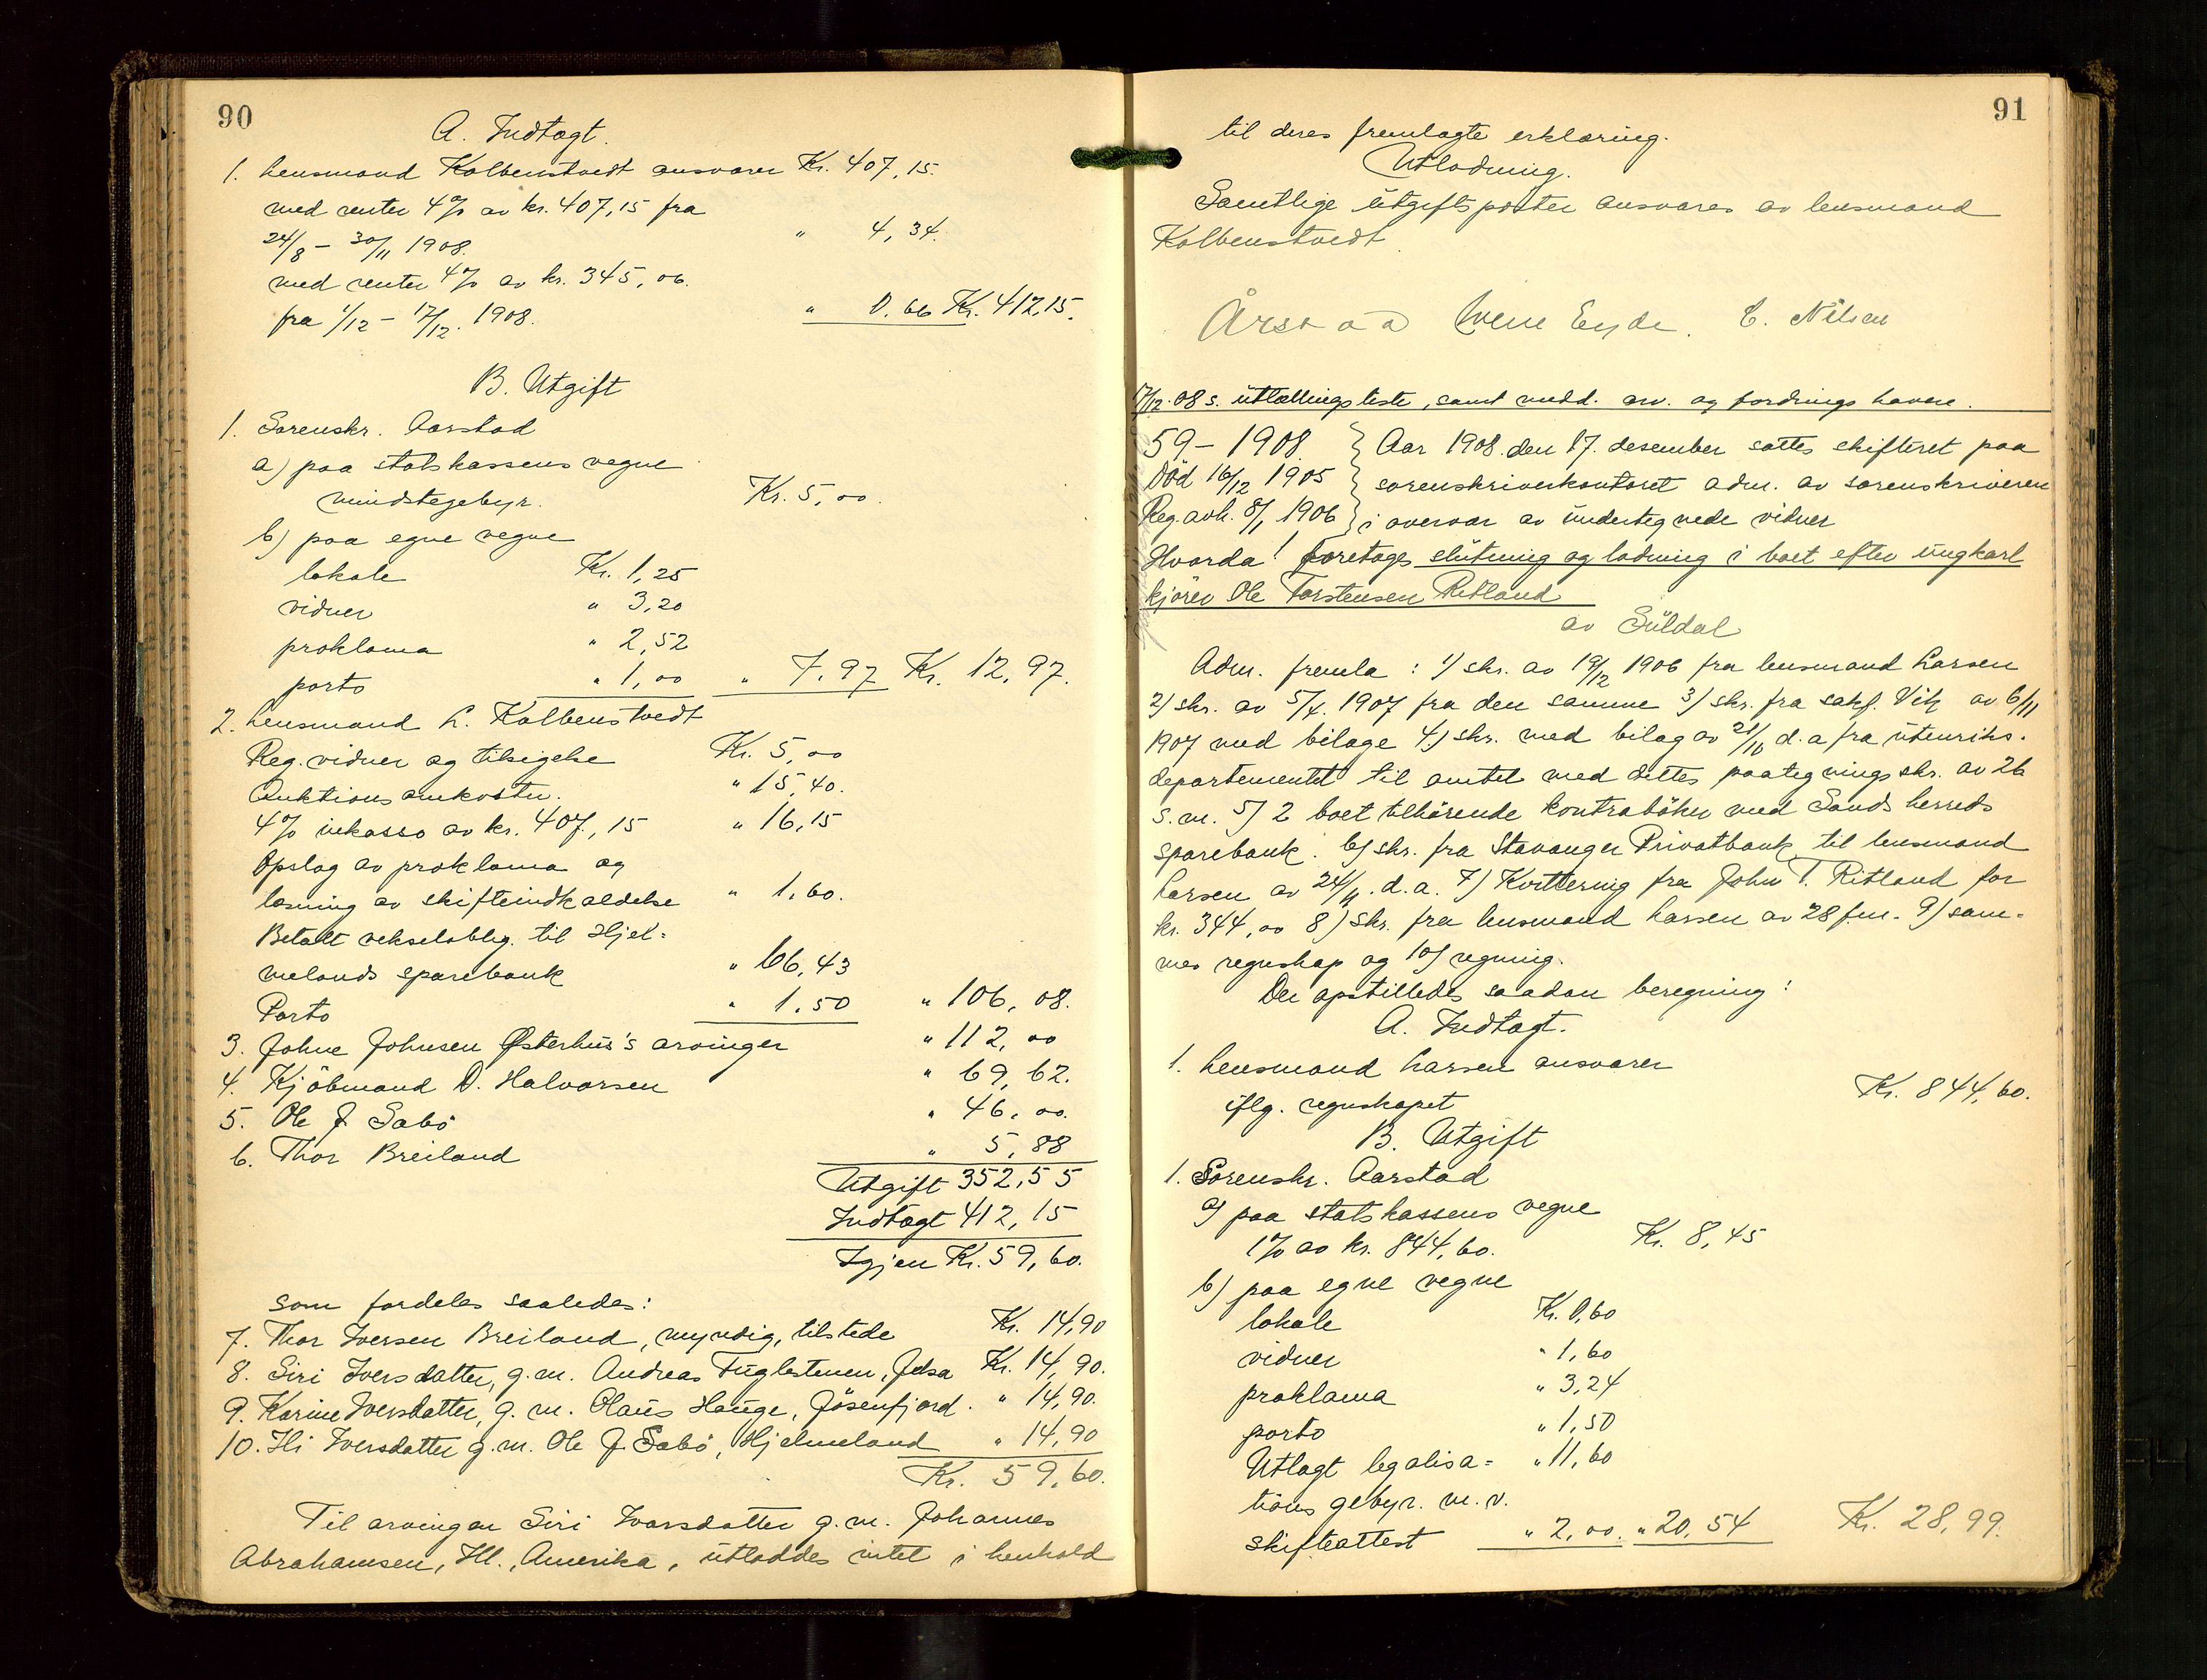 90
A. Indtægt.
1. Lensmand Kolbenstvedt ansvarer Kr. 407,15.
med renter 4% av kr. 407,15 fra
24/8 - 30/11 1908. " 4,34.
med renter 4% av kr. 345,06.
fra 1/12 - 17/12. 1908. " 0.66 Kr. 412,15.
B. Utgift
1. Sorenskr. Aarstad
a) paa statskassens vegne
mindstegebyr. Kr. 5,00.
b) paa egne vegne
lokale Kr. 1,25
vidner " 3,20
proklama " 2,52
porto " 1,00 " 7,97 Kr. 12,97.
2. Lensmand L. Kolbenstvedt
Reg. vidner og tilsigelse Kr. 5,00
Auktionsomkostn. " 15,40.
4% inkasso av kr. 407,15 " 16,15
Opslag av proklama og
læsning av skifteindkaldelse " 1,60.
Betalt vekseloblig. til Hjel-
melands sparebank " 66,43
Porto " 1,50 " 106,08.
3. Johne Johnsen Østerhus's arvinger " 112,00
4. Kjøbmand D. Halvorsen " 69,62.
5. Ole J. Sabø " 46,00.
6. Thor Breiland " 5,88
Utgift 352,55
Indtægt 412,15
Igjen Kr. 59,60.
som fordeles saaledes:
7. Thor Iversen Breiland, myndig, tilstede Kr. 14,90
8. Siri Iversdatter, g.m. Andreas Fuglestenen, Jelsa Kr. 14,90.
9. Karine Iversdatter, g.m. Olaus Hauge, Jøsenfjord. " 14,90.
10. Ili Iversdatter g.m. Ole J. Sabø, Hjelmeland " 14,90
Kr. 59,60.
Til arvingen Siri Ivarsdatter g.m. Johannes
Abrahamsen, Ill., Amerika, utloddes intet i henhold
91
til deres fremlagte erklæring.
Utlodning.
Samtlige utgiftsposter ansvares av lensmand
Kolbenstvedt.
Årstad Eyde. C. Nilsen
17/12.08 s. utlællingsliste, samt medd. arv. og fordringshavere.
59 - 1908. } Aar 1908. den 17. desember sattes skifteret paa
Død 16/12 1905 } sorenskriverkontoret adm. av sorenskriveren
Reg. avh. 8/1 1906 } i overvær av undertegnede vidner
Hvorda! foretoges slutning og lodning i boet efter ungkarl
kjører Ole Torstensen Ritland
av Suldal
Adm. fremla: 1) skr. av 19/12 1906 fra lensmand Larsen
2) skr. av 5/4. 1907 fra den samme 3) skr. fra sakf. Vik av 6/11
1907 med bilage 4) skr. med bilag av 21/10 d.a fra utenriks-
departementet til amtet med dettes paategningsskr. av 26
s.m. 5) 2 boet tilhørende kontrabøker med Sands herreds
sparebank. 6) skr. fra Stavanger Privatbank til lensmand
Larsen av 24/4. d.a. 7) Kvittering fra John T. Ritland for
kr. 344,00 8) skr. fra lensmand Larsen av 28 f.m. 9) sam-
mes regnskap og 10) regning.
Der opstilledes saadan beregning:
A. Indtægt.
1. Lensmand Larsen ansvarer
iflg. regnskapet Kr. 844,60.
B. Utgift
1. Sorenskr. Aarstad
a) paa statskassens vegne
1% av kr. 844,60. Kr. 8,45
b) paa egne vegne
lokale Kr. 0,60
vidner " 1,60
proklama " 3,24
porto " 1,50
Utlagt legalisa- " 11,60
tions gebyr. m.v.
skifteattest " 2,00. " 20,54 Kr. 28,99.